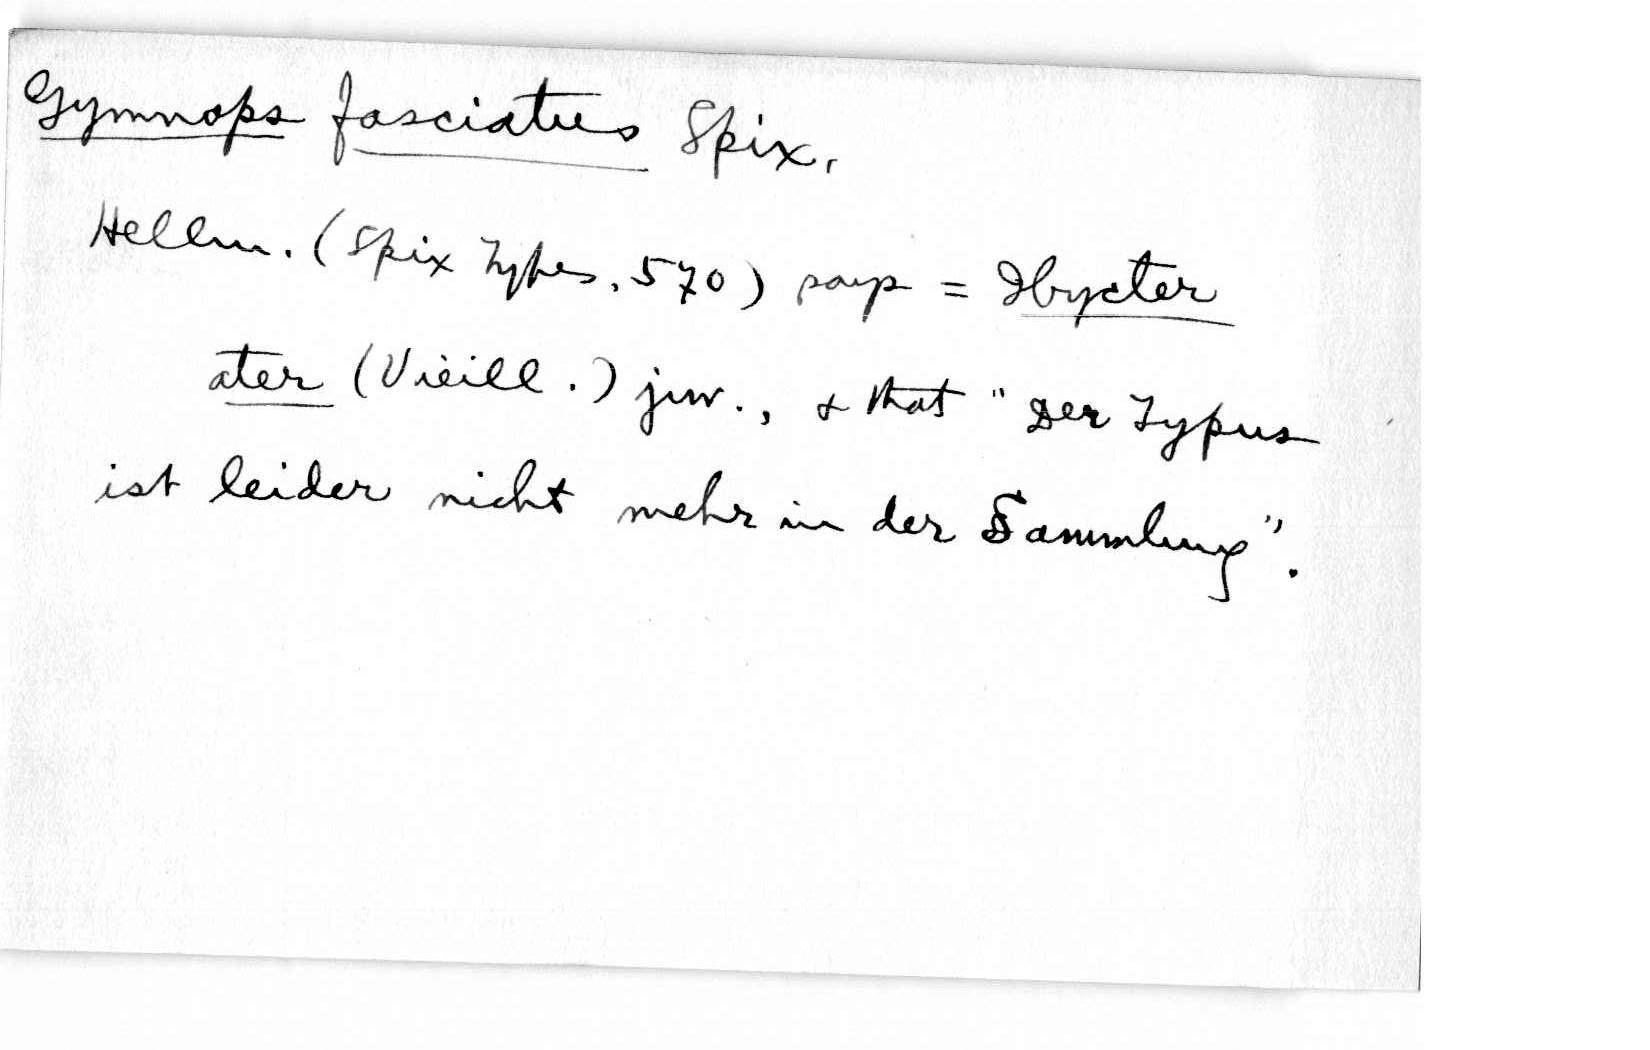 Gymnops fasciatus Spix.
Hellm. (Spix Types, 570) says = Ibycter
ater (Vieill.) juv., & that "Der Typus
ist leider nicht mehr in der Sammlung".